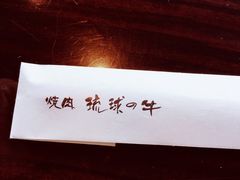 焼肉 琉球の牛